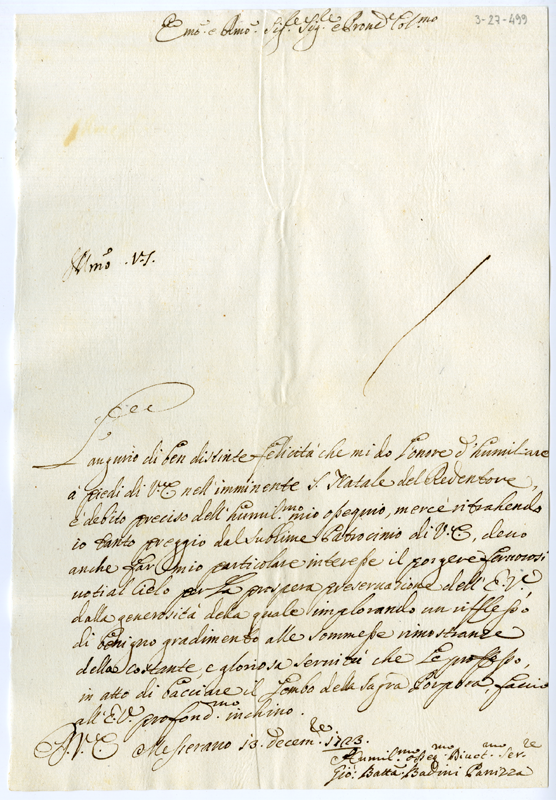 3-27-499
Em.mo e Rmo. Sig.re Sig.re e Prone Col.mo
V.S.
L'augurio di ben distinte felicità che mi do l'onore d'humiliare
à piedi di V.E. nell'imminente S. Natale del Redentore,
è debito preciso dell'humil.mo mio ossequio, mercè ritrahendo
io tanto preggio dal sublime Patrocinio di V.E., devo
anche far mio particolare interesse il porgere fervorosi
voti al Cielo per la prospera preservazione dell'E.V.
dalla generosità della quale implorando un riflesso
di benigno gradimento alle sommesse rimostranze
della costante e gloriosa servitù che le professo,
in atto di bacciare il Lembo della Sagra Porpora, faccio
all'E.V. profond.mo inchino.
D.V.E. Messerano 13. Decem.re 1723.
Humil.mo osseq.mo Divot.mo Ser.re
Gio. Batta. Badini Panizza